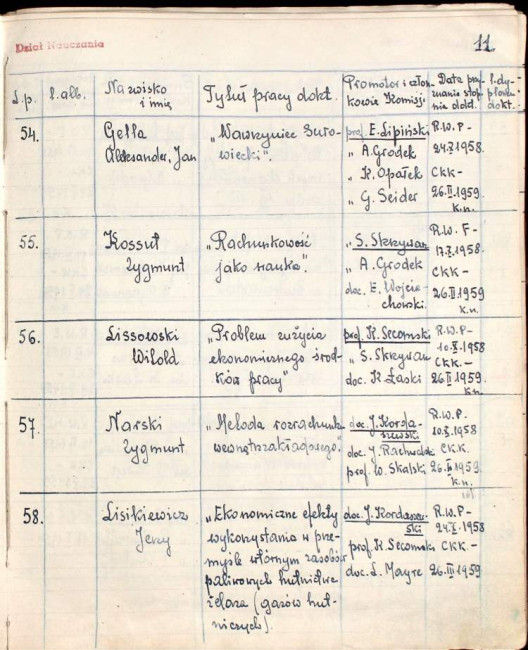 Dział Nauczania
11
L.p.
l.alb.
Nazwisko
i imię
Tytuł pracy dokt.
Promotor i człon-
kowie Komisji
Data przy-
znania stop-
nia dokt.
l.dy-
plomu
dokt.
54.
Gella
Aleksander, Jan
„Wawrzyniec Suro-
wiecki".
prof. E. Lipiński
„ A. Grodek
„ K. Opałek
„ G. Seider
R.W.P-
1958.
CKK-
1959.
k.n.
55.
Kossut
Zygmunt
„Rachunkowość
jako nauka".
„ S. Skrzywan
„ A. Grodek
doc. E. Wojcie-
chowski.
R.W. F-
1958.
CKK-
1959
k.n.
56.
Lissowski
Witold
„Problem zużycia
ekonomicznego środ-
ków pracy"
prof. K. Secomski
„ S. Skrzywan
doc. K. Łaski
R.W.P-
1958
CKK.-
1959.
k.n.
57.
Narski
Zygmunt
„Metoda rozrachunku
wewnątrzzakładowego".
doc. J. Korda-
szewski
doc. J.
prof. W. Skalski
R.W.P.
1958
CKK.
1959.
k.n.
58.
Lisikiewicz
Jerzy
„Ekonomiczne efekty
wykorzystania w prze-
myśle wtórnym zasobów
paliwowych hutnictwa
żelaza (gazów hut-
niczych).
doc. J. Kordaszew-
ski
prof. K. Secomski
doc. L. Mayre
R.W.P-
1958
CKK-
1959